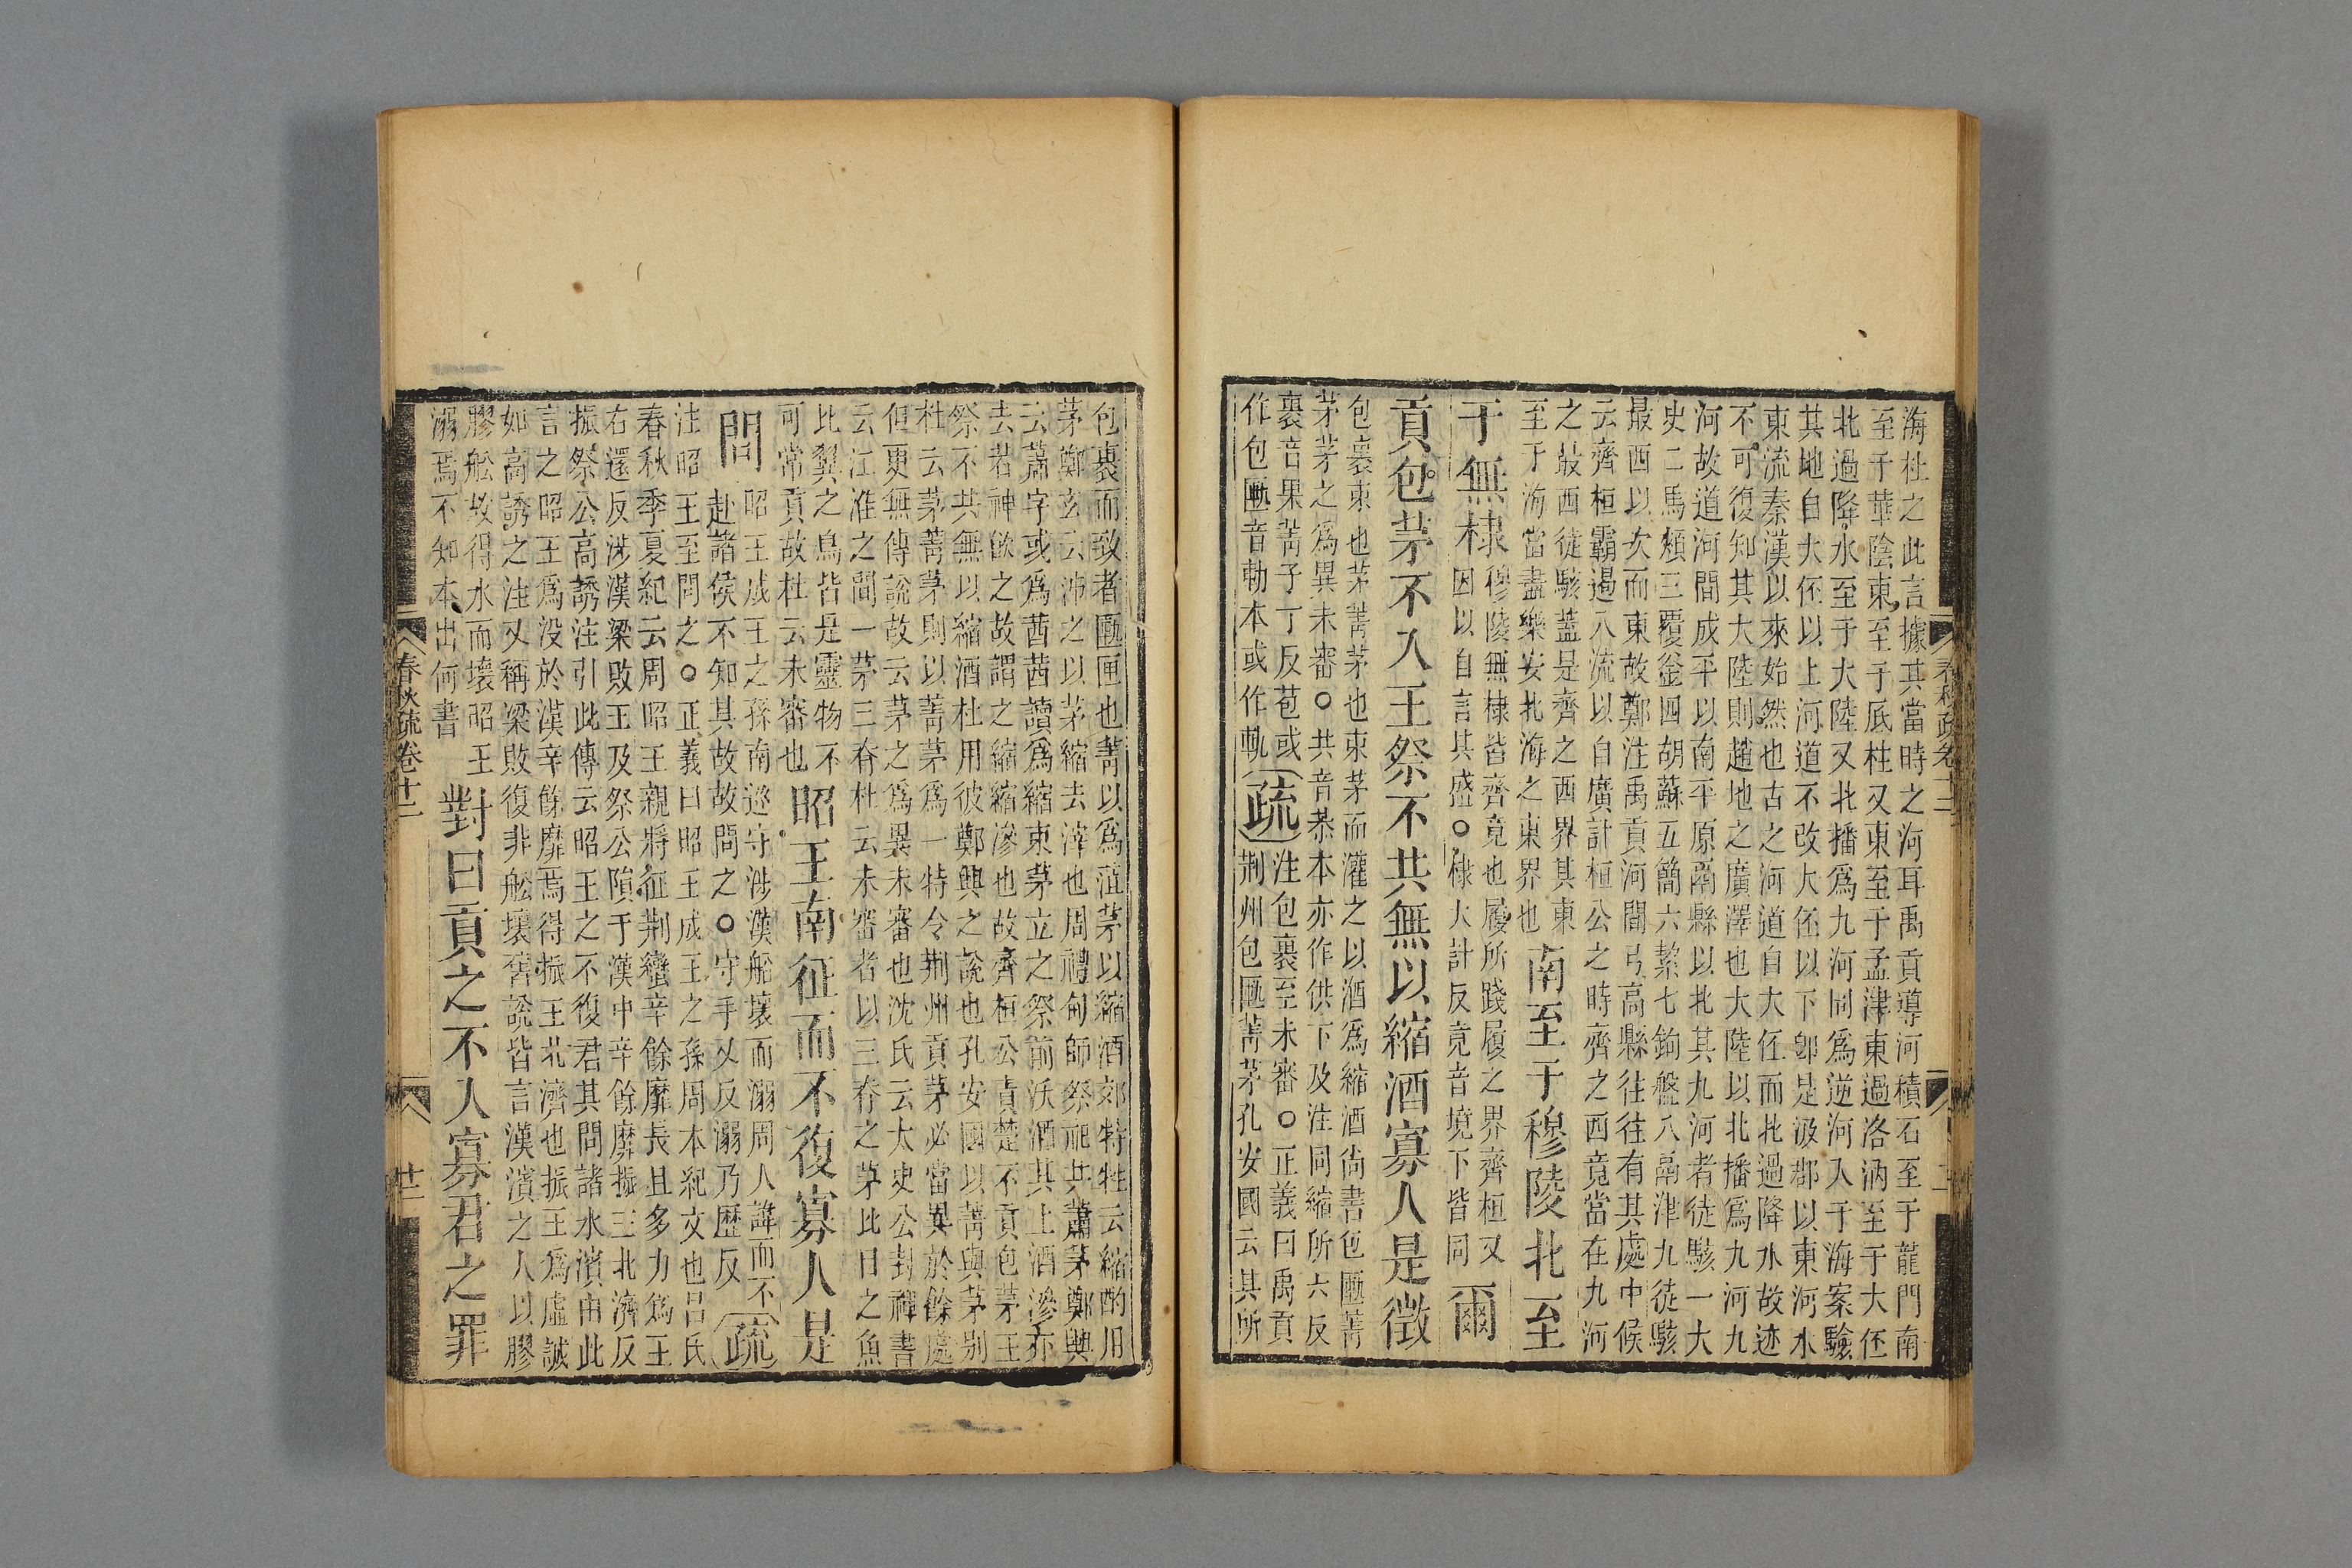 海杜之此言據其當時之河耳禹貢導河積石至于龍門南
至于華陰東至于底柱又東至于孟津東過洛汭至于大伾
北過降水至于大陸又北播爲九河同爲逆河入于海案驗
其地自大伾以上河道不改大伾以下卽是汲郡以東河水
東流秦漢以來始然也古之河道自大伾而北過降水故迹
不可復知其大陸則趙地之廣澤也大陸以北播爲九河九
河故道河間成平以南平原鬲縣以北其九河者徒駭一大
史二馬頰三覆釡四胡蘇五簡六絜七鉤盤八鬲津九徒駭
最西以次而東故鄭注禹貢河間弓高縣往往有其處中候
云齊桓霸遏八流以自廣計桓公之時齊之西竟當在九河
之最西徒駭蓋是齊之西界其東
至于海當盡樂安北海之東界也
南至于穆陵北至
于無棣
穆陵無棣皆齊竟也履所踐履之界齊桓又
因以自言其盛○棣大計反竟音境下皆同
爾
貢包茅不入王祭不共無以縮酒寡人是徵
包裹束也茅菁茅也束茅而灌之以酒爲縮酒尙書包匭菁
茅茅之爲異未審○共音恭本亦作供下及注同縮所六反
裹音果菁子丁反苞或
作包匭音軌本或作軌
疏
注包裹至未審○正義曰禹貢
荆州包匭菁茅孔安國云其所
春秋疏卷十二
包裹而致者匭匣也菁以爲菹茅以縮酒郊特牲云縮酌用
茅鄭玄云沛之以茅縮去滓也周禮甸師祭祀共蕭茅鄭興
云蕭字或爲莤莤讀爲縮束茅立之祭前沃酒其上酒滲亦
去若神飲之故謂之縮縮滲也故齊桓公責楚不貢包茅王
祭不共無以縮酒杜用彼鄭興之說也孔安國以菁與茅别
杜云茅菁茅則以菁茅爲一特令荆州貢茅必當異於餘處
但更無傳說故云茅之爲異未審也沈氏云太史公封禪書
云江淮之間一茅三脊杜云未審者以三脊之茅比目之魚
比翼之鳥皆是靈物不
可常貢故杜云未審也
昭王南征而不復寡人是
問
昭王成王之孫南巡守涉漢船壞而溺周人諱而不
赴諸侯不知其故故問之○守手又反溺乃歷反
疏
注昭王至問之○正義曰昭王成王之孫周本紀文也呂氏
春秋季夏紀云周昭王親將征荆蠻辛餘靡長且多力爲王
右還反涉漢梁敗王及祭公隕于漢中辛餘靡振王北濟反
振祭公高誘注引此傳云昭王之不復君其問諸水濱由此
言之昭王爲没於漢辛餘靡焉得振王北濟也振王爲虛誠
如高誘之注又稱梁敗復非舩壞舊說皆言漢濱之人以膠
膠舩故得水而壞昭王
溺焉不知本出何書
對曰貢之不入寡君之罪
春秋疏卷十二
廿二